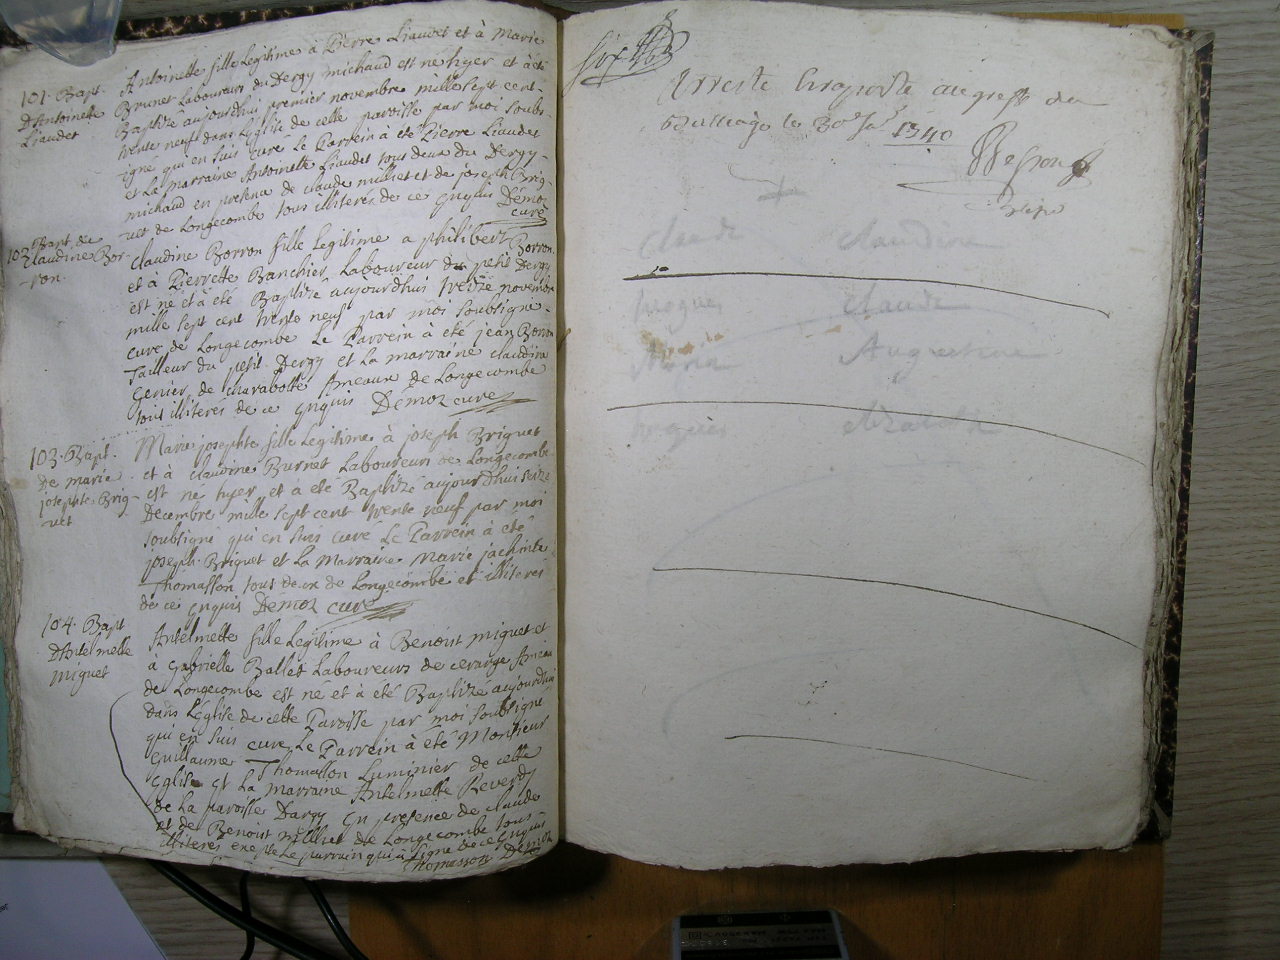 101. Bapt.
D'Antoinette
Liaudet
Antoinette fille Legitime à Pierre Liaudet et à Marie
Brunet Laboureurs du Dergy michaud est ne hyer et à été
Baptizé aujourdhui premier novembre mille sept cent
trente neuf dans L'église de cette paroisse par moi soubs-
igné qui en suis curé Le Parrein à été Pierre Liaudet
et La marraine Antoinette Liaudet tous deux du Dergy
michaud en presence de claude milliet et de joseph Brig-
uet de Longecombe tous illiteres de ce enquis Démoz
curé
102 Bapt. de
Claudine Bor-
ron.
Claudine Borron fille Legitime a philibert Borron
et à Pierrette Banchier Laboureur du petit Dergy
est né et à été Baptizé aujourdhui treize novembre
mille sept cent trente neuf par moi soubsigné
curé de Longecombe Le Parrein à été jean Borron
Tailleur du petit Dergy et La marraine claudine
Genier de charabotte Ameaux de Longecombe
tous illiteres de ce enquis Démoz curé
103. Bapt.
De marie
josephte Brig-
uet
Marie josephte fille Legitime à joseph Briguet
et à claudine Burnet Laboureurs de Longecombe
est né hyer et à été Baptizé aujourdhui seize
Decembre mille sept cent trente neuf par moi
soubsigné qui en suis curé Le Parrein à été
joseph Briguet et La Marraine Marie jachinte
Thomasson tous deux de Longecombe et illiteres
de ce enquis Démoz curé
104. Bapt
D'Antelmette
miguet
Antelmette fille Legitime à Benoist miguet et
à Gabrielle Ballet Laboureurs de cerarge Ameau
de Longecombe est né et à été Baptizé aujourdhui
dans L'église de cette Paroisse par moi soubsigné
qui en suis curé Le Parrein à été Monsieur
Guillaume Thomasson Luminier de cette
eglise et La marraine Antelmette Reverdy
de La paroisse D'argy en presence de claude
et de Benoist milliet de Longecombe tous
illiteres exepte Le parrain qui à signé de ce enquis
Thomasson Démoz
six
Arresté au greffe du
Bailliage le 30e Ja 1740
claude claudine
claude
Maria Augustine